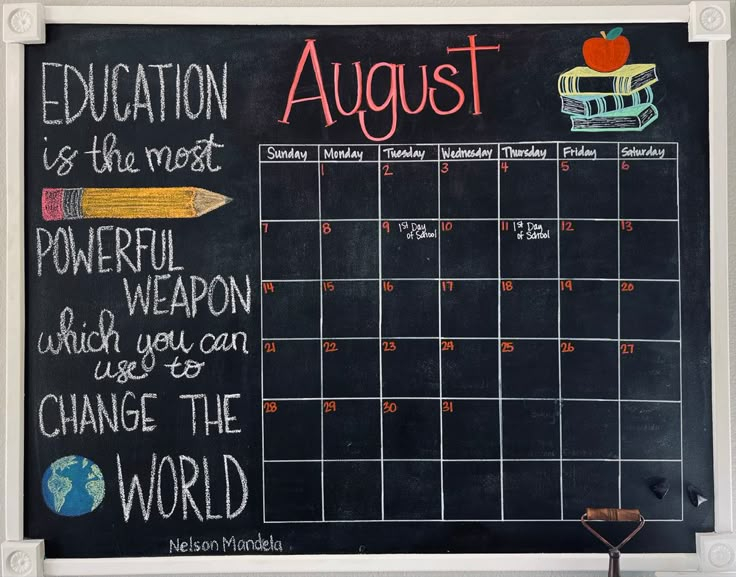 EDUCATION
is the most
POWERFUL
WEAPON
which you can
use to
CHANGE THE
WORLD
Nelson Mandela
August
Sunday Monday Tuesday Wednesday Thursday Friday Saturday
1 2 3 4 5 6
7 8 9 1st Day of School 10 11 1st Day of School 12 13
14 15 16 17 18 19 20
21 22 23 24 25 26 27
28 29 30 31